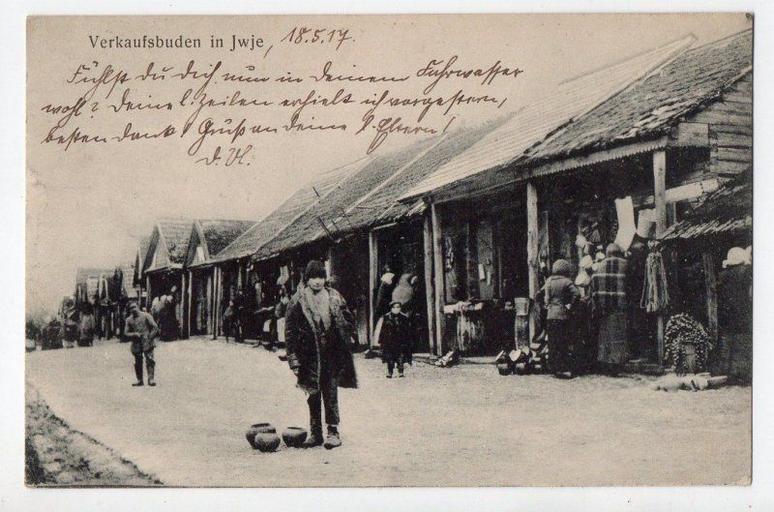 Verkaufsbuden in Jwje, 18.5.17.
Fühlst du Dich nun in deinem Fahrwasser
wohl? Deine l. Zeilen erhielt ich vorgestern,
besten Dank! Gruß an deine l. Eltern!
d. Vl.